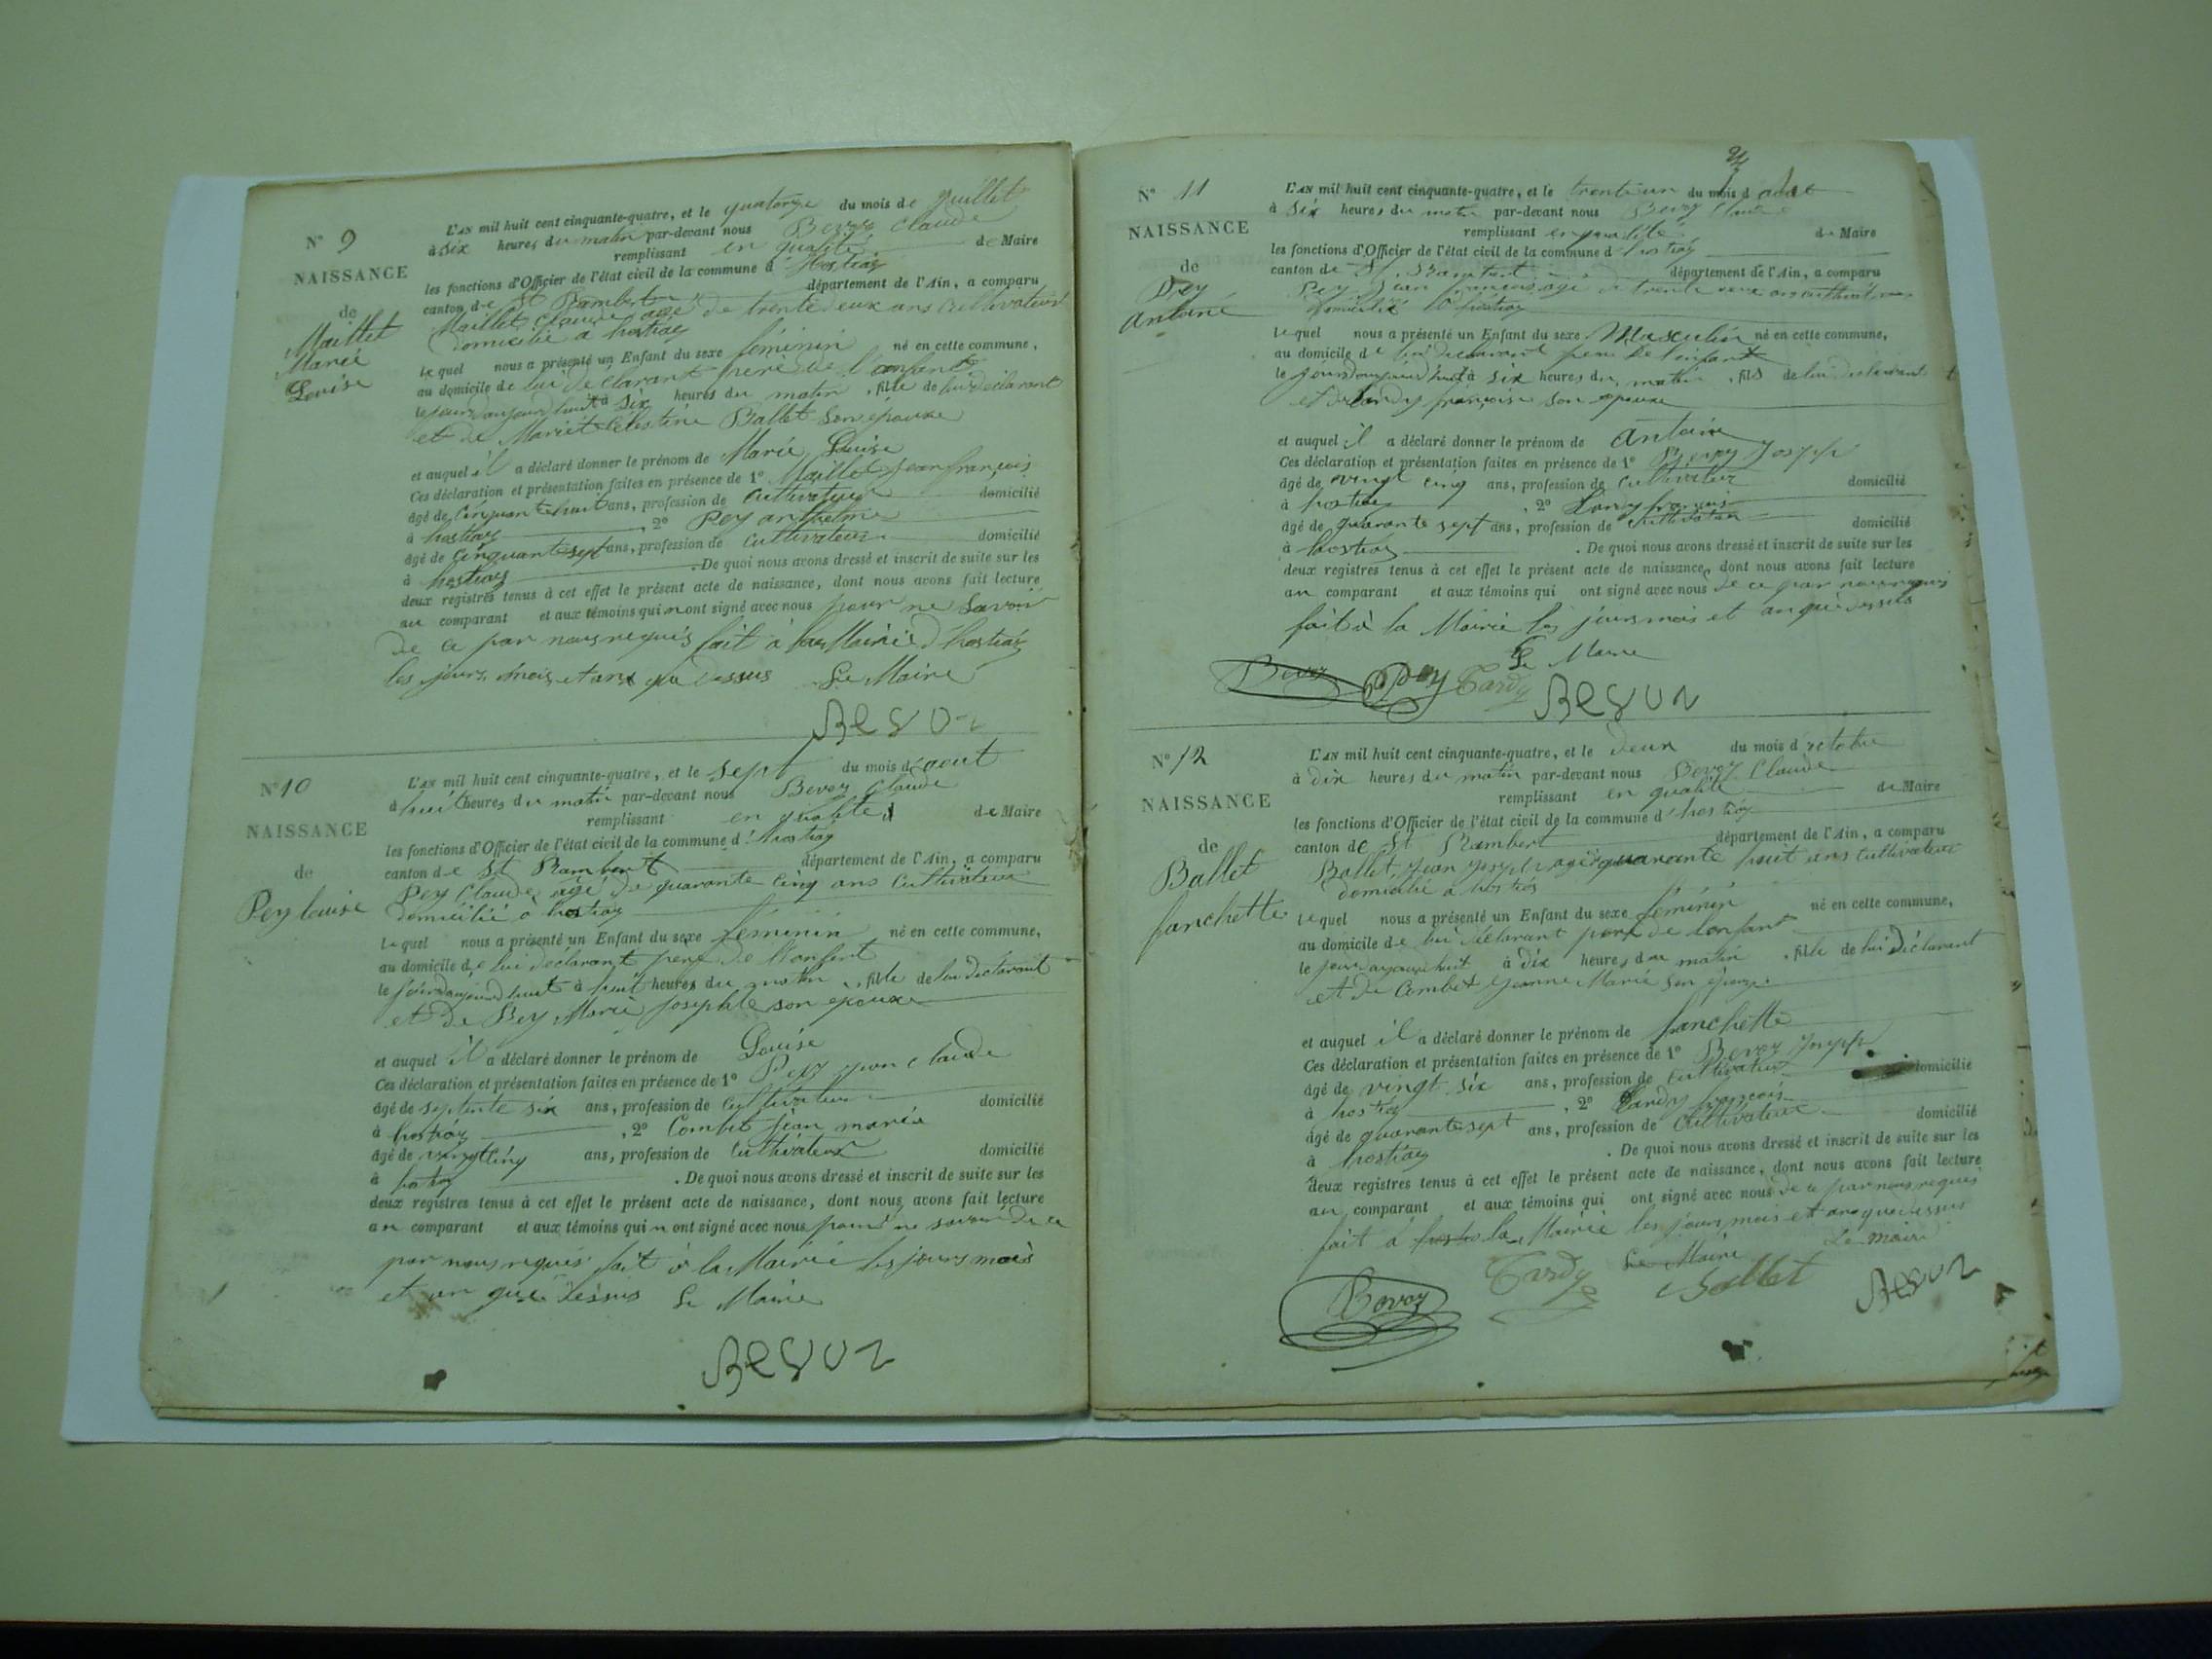 N° 9
NAISSANCE
de
Maillet
Marie
Louise
L'AN mil huit cent cinquante-quatre, et le quatorze du mois de juillet
à six heures du matin par-devant nous Bevoz Claude
remplissant en qualité de Maire
les fonctions d'Officier de l'état civil de la commune d'hostiaz
canton de St Rambert département de l'Ain, a comparu
Maillet Claude agé de trente deux ans cultivateur
domicilié a hostiaz
lequel nous a présenté un Enfant du sexe féminin né en cette commune,
au domicile de lui déclarant pere de l'enfant
le jour daujourdhuit à six heures du matin, fille de lui déclarant
et de Mariet Célestine Ballet son épouse
et auquel il a déclaré donner le prénom de Marie Louise
Ces déclaration et présentation faites en présence de 1° Maillet jean françois
âgé de cinquante huit ans, profession de cultivateur domicilié
à hostiaz, 2° Pey anthelme
âgé de cinquante sept ans, profession de cultivateur domicilié
à hostiaz. De quoi nous avons dressé et inscrit de suite sur les
deux registres tenus à cet effet le présent acte de naissance, dont nous avons fait lecture
au comparant et aux témoins qui n ont signé avec nous pour ne savoir
de ce par nous requis fait à la Mairie d'hostiaz
les jours, mois, et ans que dessus Le Maire
Bevoz
N° 10
NAISSANCE
de
Pey louise
L'AN mil huit cent cinquante-quatre, et le sept du mois d'aout
à huit heures du matin par-devant nous Bevoz Claude
remplissant en qualité de Maire
les fonctions d'Officier de l'état civil de la commune d'hostiaz
canton de St Rambert département de l'Ain, a comparu
Pey Claude agé de quarante cinq ans cultivateur
domicilié à hostiaz
lequel nous a présenté un Enfant du sexe féminin né en cette commune,
au domicile de lui déclarant pere de l'enfant
le jour daujourdhuit à huit heures du matin, fille de lui déclarant
et de Pey Marie josephte son épouse
et auquel il a déclaré donner le prénom de Louise
Ces déclaration et présentation faites en présence de 1° Pey jean claude
âgé de septente six ans, profession de cultivateur domicilié
à hostiaz, 2° Combet jean marie
âgé de vingtcinq ans, profession de cultivateur domicilié
à . De quoi nous avons dressé et inscrit de suite sur les
deux registres tenus à cet effet le présent acte de naissance, dont nous avons fait lecture
au comparant et aux témoins qui n ont signé avec nous pour ne savoir de ce
par nous requis fait à la Mairie les jours mois
et an que dessus Le Maire
Bevoz
N° 11
NAISSANCE
de
Pey
antoine
L'AN mil huit cent cinquante-quatre, et le trente un du mois d'aout
à six heures du matin par-devant nous Bevoz Claude
remplissant en qualité de Maire
les fonctions d'Officier de l'état civil de la commune d'hostiaz
canton de St Rambert département de l'Ain, a comparu
Pey jean françois agé de trente deux ans cultivateur
domicilié a hostiaz
lequel nous a présenté un Enfant du sexe Masculin né en cette commune,
au domicile de lui déclarant pere de l'enfant
le jour daujourdhuit à six heures du matin, fils de lui déclarant
et de françoise son épouse
et auquel il a déclaré donner le prénom de antoine
Ces déclaration et présentation faites en présence de 1° Bevoz joseph
âgé de vingt cinq ans, profession de cultivateur domicilié
à hostiaz, 2° Tardy françois
âgé de quarante sept ans, profession de cultivateur domicilié
à hostiaz. De quoi nous avons dressé et inscrit de suite sur les
deux registres tenus à cet effet le présent acte de naissance, dont nous avons fait lecture
au comparant et aux témoins qui ont signé avec nous de ce par nous requis
fait à la Mairie les jours mois et an que dessus
Le Maire
Bevoz Pey Tardy Bevoz
N° 12
NAISSANCE
de
Ballet
fanchette
L'AN mil huit cent cinquante-quatre, et le deux du mois d'octobre
à dix heures du matin par-devant nous Bevoz Claude
remplissant en qualité de Maire
les fonctions d'Officier de l'état civil de la commune d'hostiaz
canton de St Rambert département de l'Ain, a comparu
Ballet jean joseph agé quarante huit ans cultivateur
domicilié a hostiaz
lequel nous a présenté un Enfant du sexe féminin né en cette commune,
au domicile de lui déclarant pere de l'enfant
le jour daujourdhuit à dix heures du matin, fille de lui déclarant
et de Combet jeanne Marie son épouse
et auquel il a déclaré donner le prénom de fanchette
Ces déclaration et présentation faites en présence de 1° Bevoz joseph
âgé de vingt six ans, profession de cultivateur domicilié
à hostiaz, 2° Tardy françois
âgé de quarante sept ans, profession de cultivateur domicilié
à hostiaz. De quoi nous avons dressé et inscrit de suite sur les
deux registres tenus à cet effet le présent acte de naissance, dont nous avons fait lecture
au comparant et aux témoins qui ont signé avec nous de ce par nous requis
fait à la Mairie les jours mois et an que dessus
Le Maire Le maire
Bevoz Tardy Ballet Bevoz